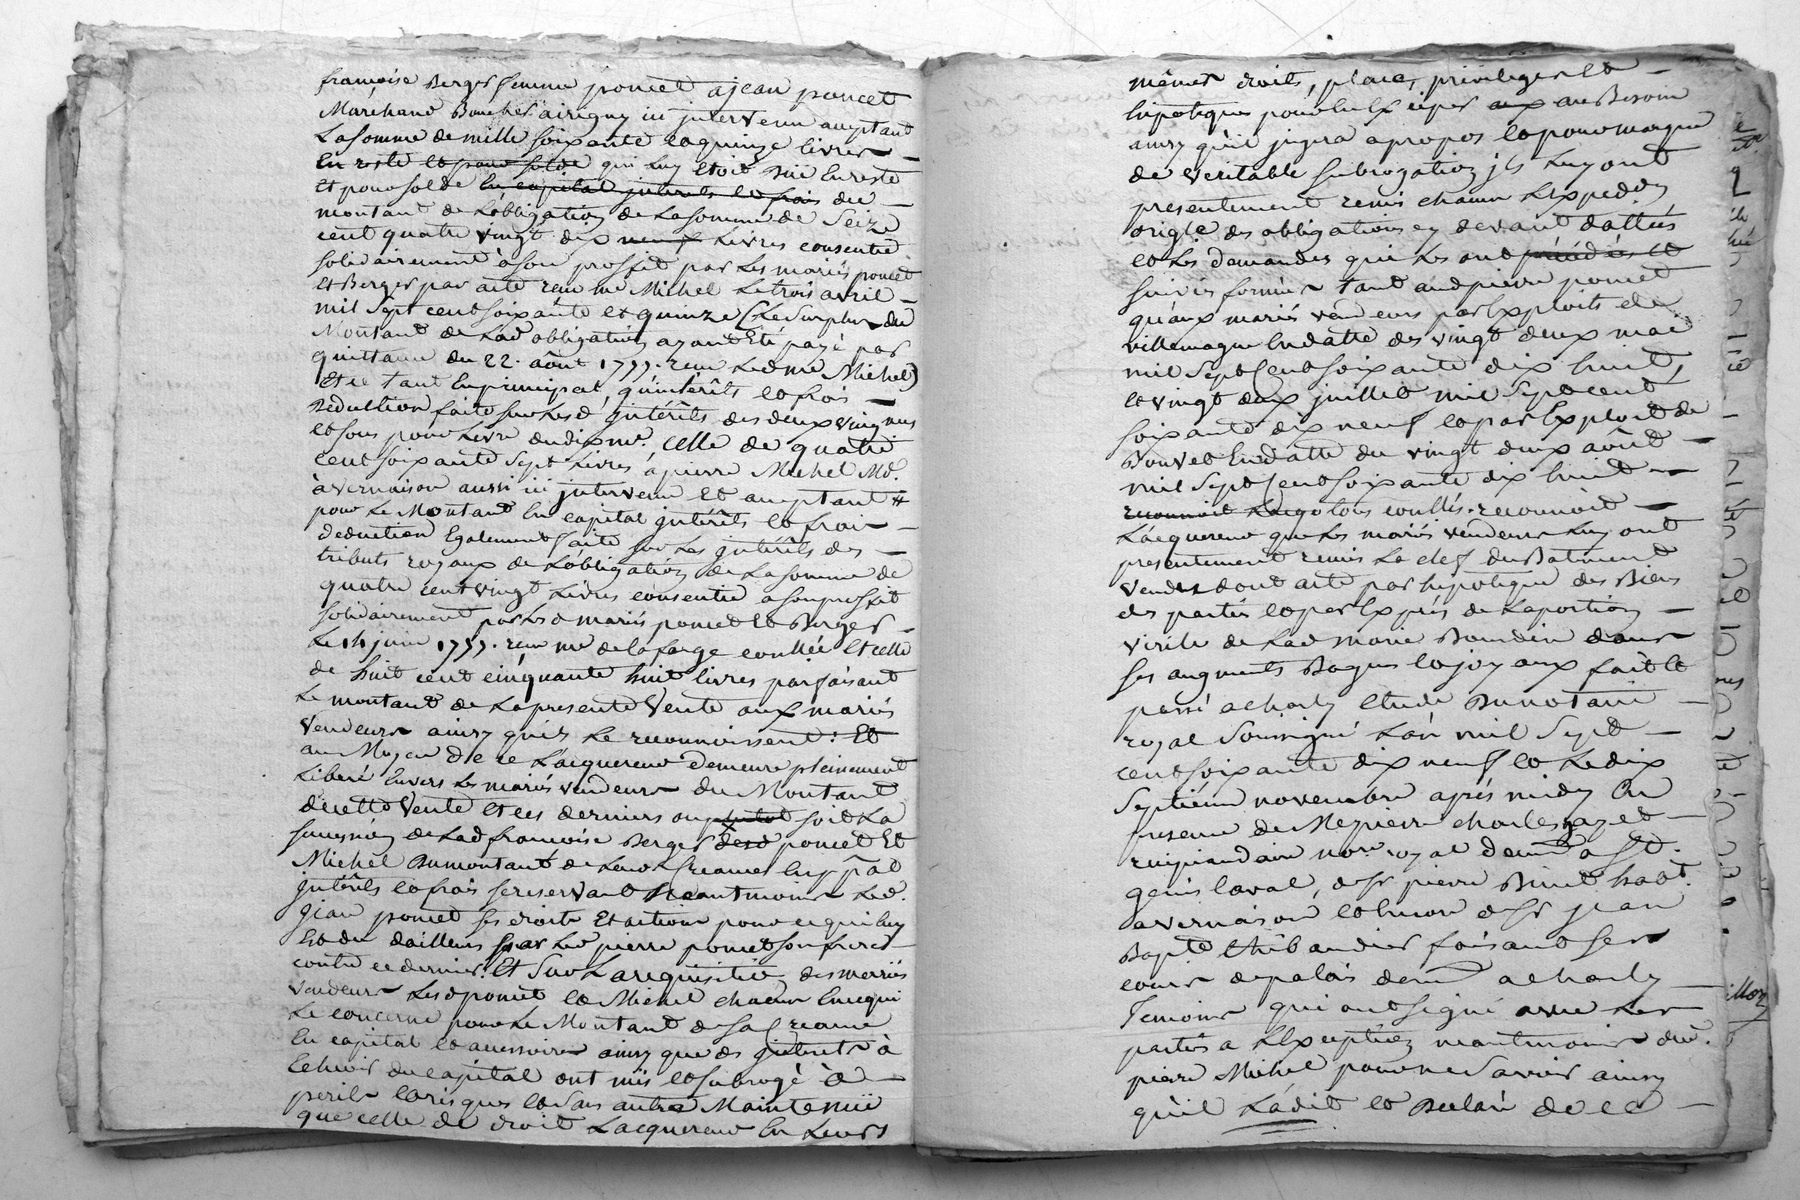 françoise Berger femme poncet a jean poncet
Marchand Boucher a irigny ici intervenu acceptant
La somme de mille soixante et quinze livres
En reste et pour solde qui luy etoit due En reste
Et pour solde En capital interets et frais du
montant de L'obligation de La somme de Seize
cent quatre vingt dix neuf Livres consentie
solidairement à son proffit par Les mariés poncet
Et Berger par acte recu me Michel Le trois avril
mil sept cent soixante et quinze (Le surplus du
Montant de Lad obligation ayant Eté payé par
quittance du 22. août 1777. recu Led me Michel)
Et ce tant En principal, qu'intérêts et frais
Déduction faite sur Lesd intérêts des deux vingmes
et sous pour Livre du dixme. Celle de quatre
Cent soixante Sept Livres à pierre Michel Md.
à vernaison aussi ici intervenu Et acceptant
pour Le Montant En capital intérêts et frais
déduction Egalement faite sur Les intérêts des
tributs royaux de L'obligation de La somme de
quatre cent vingt Livres consentie a son proffit
solidairement par Lesd mariés poncet et Berger
Le 14 juin 1777. recu me delafarge con Et celle
de huit cent cinquante huit livres parfaisant
Le montant de La presente Vente aux mariés
Vendeurs ainsy qu'ils Le reconnoissent: Et
au Moyen de ce L'acquereur demeure pleinement
Liberé Envers Les mariés vendeurs du Montant
de cette Vente Et ces derniers soit La
succession de Lad françoise Berger desd poncet Et
Michel Du montant de Leurs Creances En ppal
interêts et frais se reservant Neantmoins Led.
jean poncet ses droits Et actions pour ce qui luy
Est du d'ailleurs par Led pierre poncet son frere
contre ce dernier. Et Sur La requisition des mariés
Vendeurs Lesd poncet et Michel chacun En ce qui
Le concerne pour Le Montant de sa Creance
En capital et accessoires ainsy que des interets à
Echeoir du capital ont mis et subrogé à
perils et risques et sans autre Maintenüe
que celle de droit L'acquereur En Leurs
mêmes droits, place, privileges et
hipoteques pour Les Exiper aux au Besoin
ainsy qu'il jugera a propos et pour marque
de veritable subrogation ils Luy ont
presentement remis chacun L'Expedon
origle des obligations cy devant dattées
et Les demandes qui Les ont précédées et
suivies formées tant aud pierre poncet
qu'aux mariés vendeurs par Exploits de
villemagne En datte des vingt deux mai
mil Sept Cent soixante dix huit,
et vingt deux juillet mil Sept cent
soixante dix neuf et par Exploit de
Bouvet En datte du vingt deux août
mil Sept Cent soixante dix huit
reconnoit
L'acquereur que Les mariés vendeurs Luy ont
presentement remis La clef du Batiment
Vendu dont acte par hipoteque des Biens
des parties et par Exprès de La portion
virile de Lad marie Bourdin dans
ses augments Bagues et joyaux fait et
passé a charly Etude Du notaire
royal Soussigné L'an mil Sept
cent soixante dix neuf et Le dix
Septieme novembre après midy En
presence de Me pierre charles gayet
recipiandaire nore royal demt a St.
genis laval, de sr pierre Binet habt.
a vernaison et encore de sr jean
Bapte thibaudier faisant ses
cours de palais demt a charly
Temoins qui ont signé avec Les
parties a L'Exception neantmoins dud.
pierre Michel pour ne Savoir ainsy
qu'il L'a dit et Declaré de ce